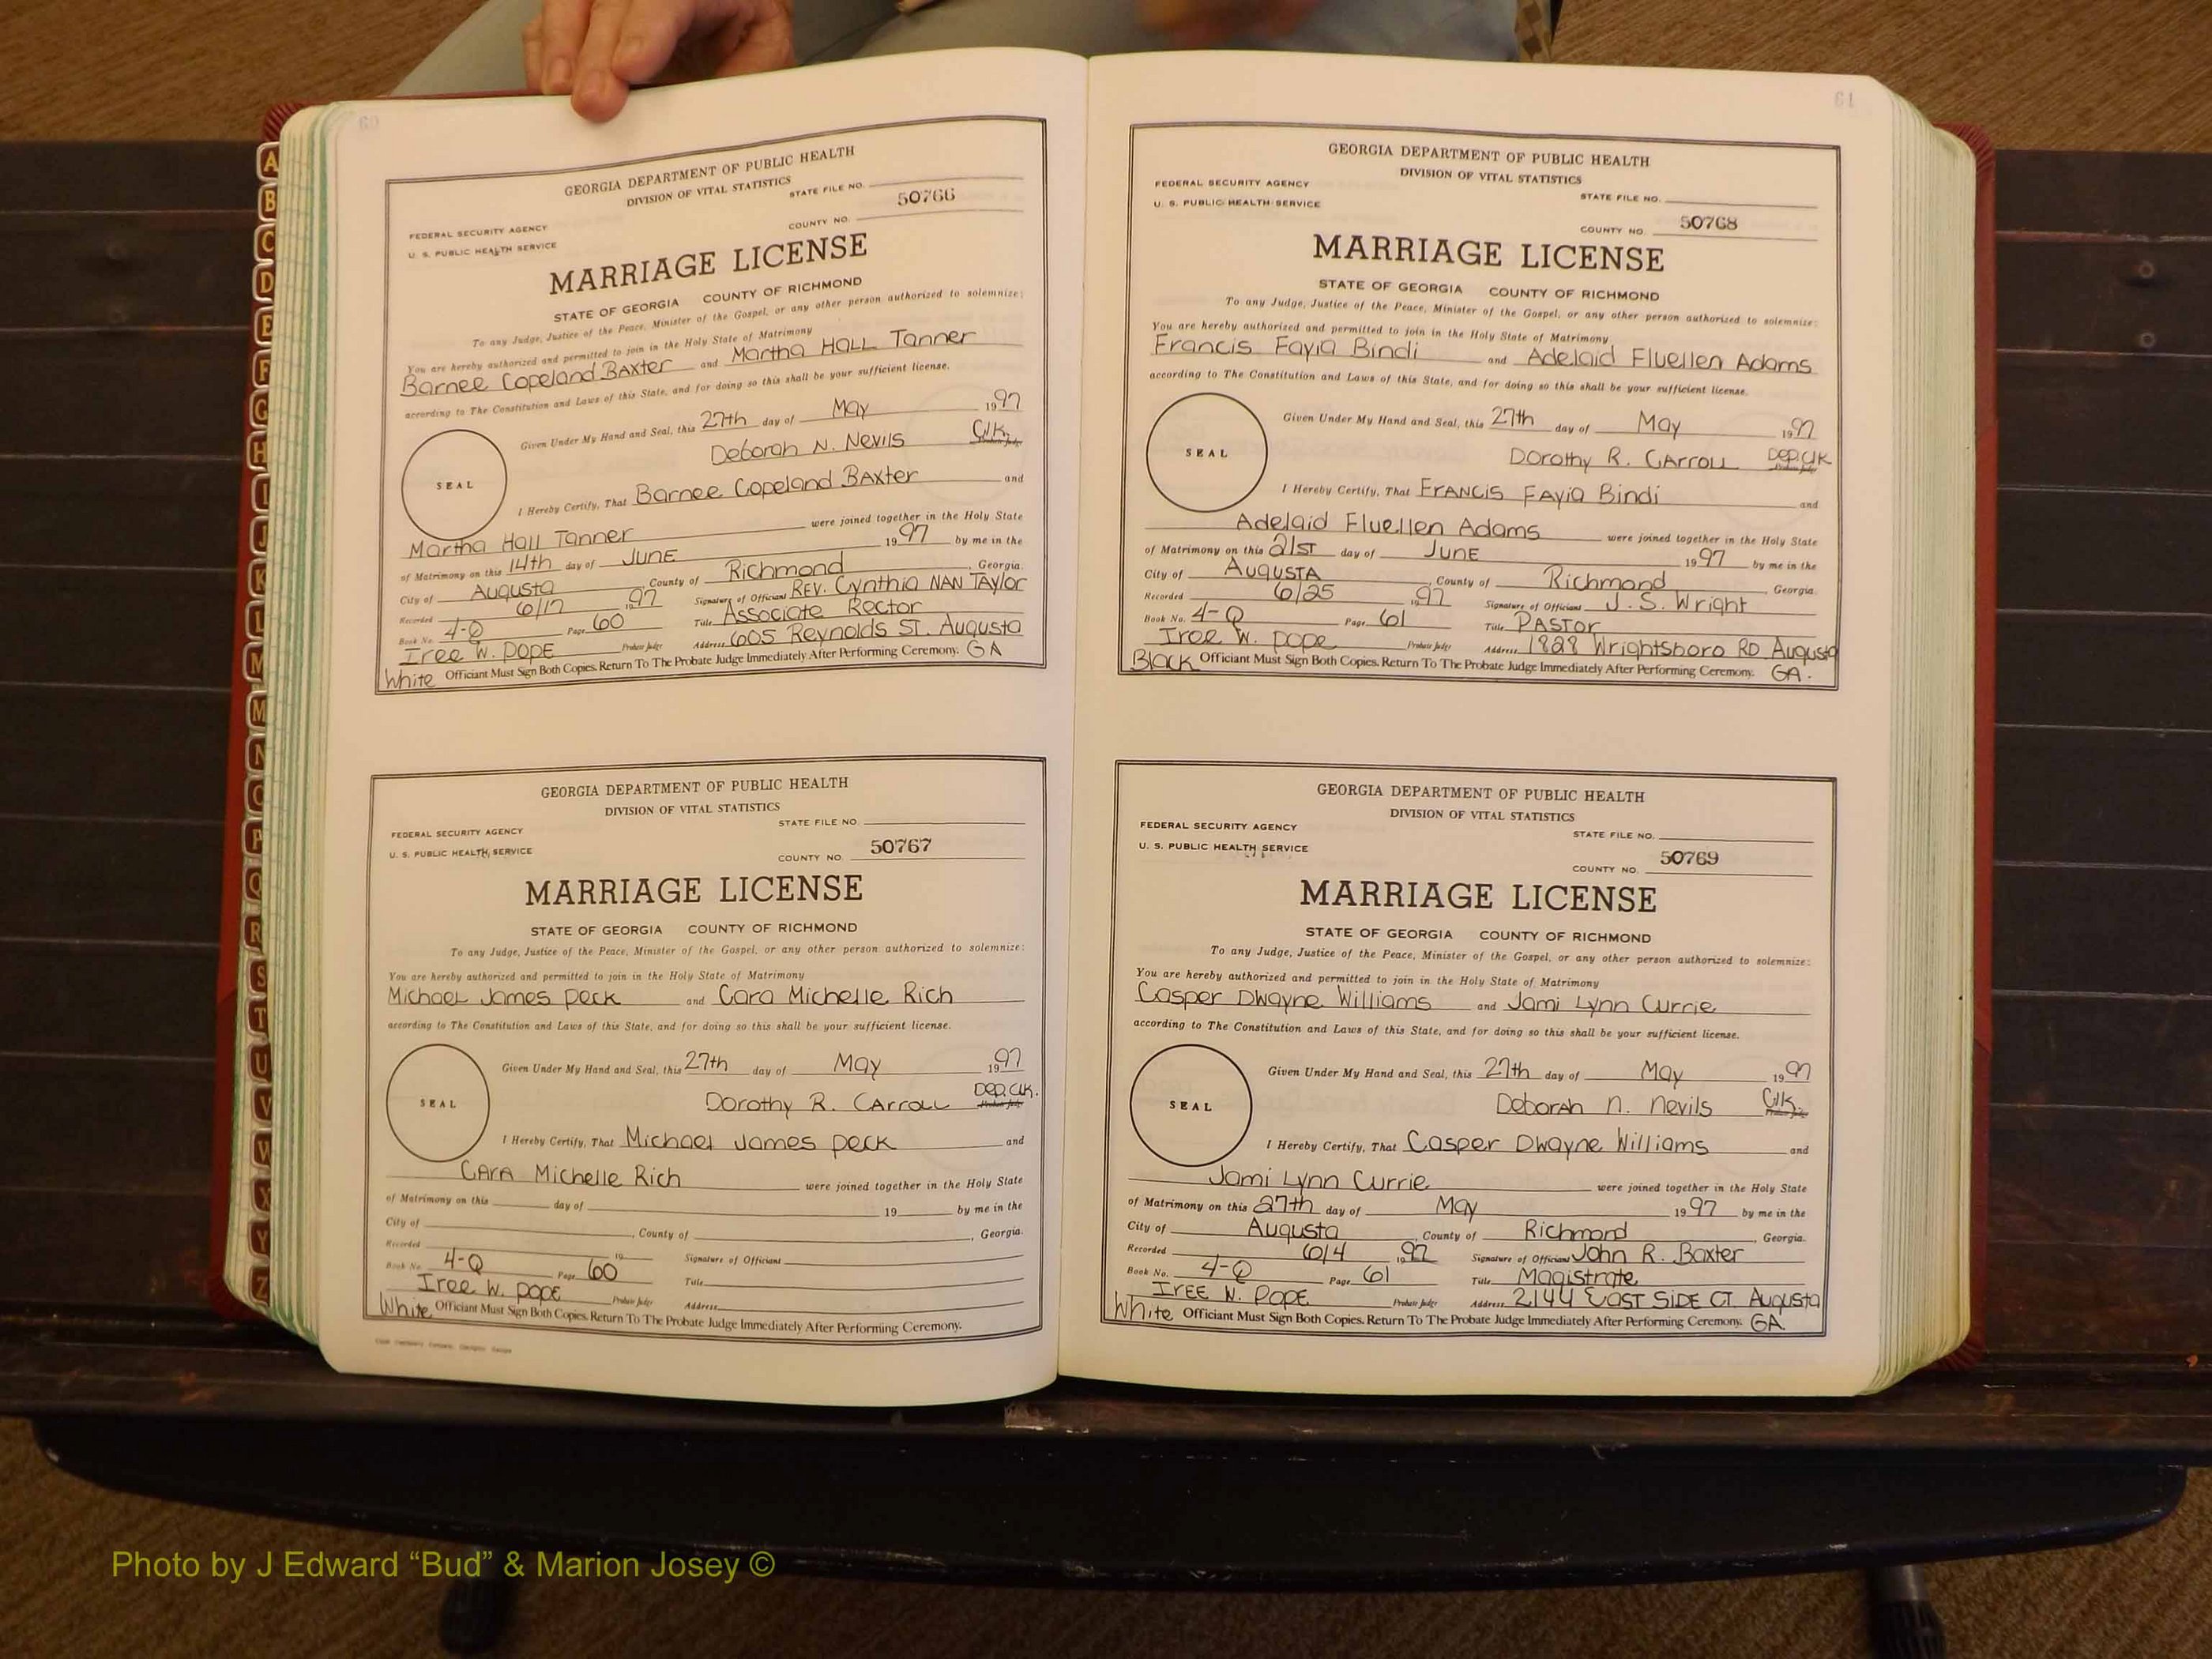 60
GEORGIA DEPARTMENT OF PUBLIC HEALTH
DIVISION OF VITAL STATISTICS
STATE FILE NO.
50766
FEDERAL SECURITY AGENCY
U. S. PUBLIC HEALTH SERVICE
COUNTY NO.
MARRIAGE LICENSE
STATE OF GEORGIA COUNTY OF RICHMOND
To any Judge, Justice of the Peace, Minister of the Gospel, or any other person authorized to solemnize:
You are hereby authorized and permitted to join in the Holy State of Matrimony
Barnee Copeland BAxter and Martha HALL Tanner
according to The Constitution and Laws of this State, and for doing so this shall be your sufficient license.
Given Under My Hand and Seal, this 27th day of May 1997
Deborah N. Nevils Clk. Probate Judge
SEAL
I Hereby Certify, That Barnee Copeland BAxter and
Martha Hall Tanner were joined together in the Holy State
of Matrimony on this 14th day of JUNE 1997 by me in the
City of Augusta, County of Richmond, Georgia.
Recorded 6/17 1997 Signature of Official REV. Cynthia NAN TAylor
Book No. 4-Q Page 60 Title Associate Rector
Iree W. POPE Probate Judge Address 605 Reynolds ST. Augusta
White Officiant Must Sign Both Copies. Return To The Probate Judge Immediately After Performing Ceremony. GA
GEORGIA DEPARTMENT OF PUBLIC HEALTH
DIVISION OF VITAL STATISTICS
STATE FILE NO.
FEDERAL SECURITY AGENCY
U. S. PUBLIC HEALTH SERVICE
COUNTY NO. 50767
MARRIAGE LICENSE
STATE OF GEORGIA COUNTY OF RICHMOND
To any Judge, Justice of the Peace, Minister of the Gospel, or any other person authorized to solemnize:
You are hereby authorized and permitted to join in the Holy State of Matrimony
Michael James Peck and Cara Michelle Rich
according to The Constitution and Laws of this State, and for doing so this shall be your sufficient license.
Given Under My Hand and Seal, this 27th day of May 1997
Dorothy R. CArroll Dep. Clk. Probate Judge
SEAL
I Hereby Certify, That Michael James Peck and
CArA Michelle Rich were joined together in the Holy State
of Matrimony on this day of 19 by me in the
City of , County of , Georgia.
Recorded 19 Signature of Official
Book No. 4-Q Page 60 Title
Iree W. POPE Probate Judge Address
White Officiant Must Sign Both Copies. Return To The Probate Judge Immediately After Performing Ceremony.
61
GEORGIA DEPARTMENT OF PUBLIC HEALTH
DIVISION OF VITAL STATISTICS
FEDERAL SECURITY AGENCY
STATE FILE NO.
U. S. PUBLIC HEALTH SERVICE
COUNTY NO. 50768
MARRIAGE LICENSE
STATE OF GEORGIA COUNTY OF RICHMOND
To any Judge, Justice of the Peace, Minister of the Gospel, or any other person authorized to solemnize:
You are hereby authorized and permitted to join in the Holy State of Matrimony
Francis Fayia Bindi and Adelaid Fluellen Adams
according to The Constitution and Laws of this State, and for doing so this shall be your sufficient license.
Given Under My Hand and Seal, this 27th day of May 1997
Dorothy R. CArroll Dep. Clk Probate Judge
SEAL
I Hereby Certify, That FrANCis FAyia Bindi and
Adelaid Fluellen Adams were joined together in the Holy State
of Matrimony on this 21ST day of JUNE 1997 by me in the
City of AugusTA, County of Richmond, Georgia.
Recorded 6/25 1997 Signature of Official J. S. Wright
Book No. 4-Q Page 61 Title PASTor
Iree W. Pope Probate Judge Address 1828 Wrightsboro RD Augusta
Black Officiant Must Sign Both Copies. Return To The Probate Judge Immediately After Performing Ceremony. GA.
GEORGIA DEPARTMENT OF PUBLIC HEALTH
DIVISION OF VITAL STATISTICS
FEDERAL SECURITY AGENCY
STATE FILE NO.
U. S. PUBLIC HEALTH SERVICE
COUNTY NO. 50769
MARRIAGE LICENSE
STATE OF GEORGIA COUNTY OF RICHMOND
To any Judge, Justice of the Peace, Minister of the Gospel, or any other person authorized to solemnize:
You are hereby authorized and permitted to join in the Holy State of Matrimony
Casper Dwayne Williams and Jami Lynn Currie
according to The Constitution and Laws of this State, and for doing so this shall be your sufficient license.
Given Under My Hand and Seal, this 27th day of May 1997
DeborAh N. Nevils Clk. Probate Judge
SEAL
I Hereby Certify, That Casper Dwayne Williams and
Jami Lynn Currie were joined together in the Holy State
of Matrimony on this 27th day of May 1997 by me in the
City of Augusta, County of Richmond, Georgia.
Recorded 6/4 1997 Signature of Official John R. Baxter
Book No. 4-Q Page 61 Title Magistrate
IrEE W. POPE Probate Judge Address 2144 EAST SiDE CT. Augusta
White Officiant Must Sign Both Copies. Return To The Probate Judge Immediately After Performing Ceremony. GA.
A
B
C
D
E
F
G
H
I
J
K
L
M
M
N
O
P
Q
R
S
T
U
V
W
X
Y
Z
Photo by J Edward “Bud” & Marion Josey ©